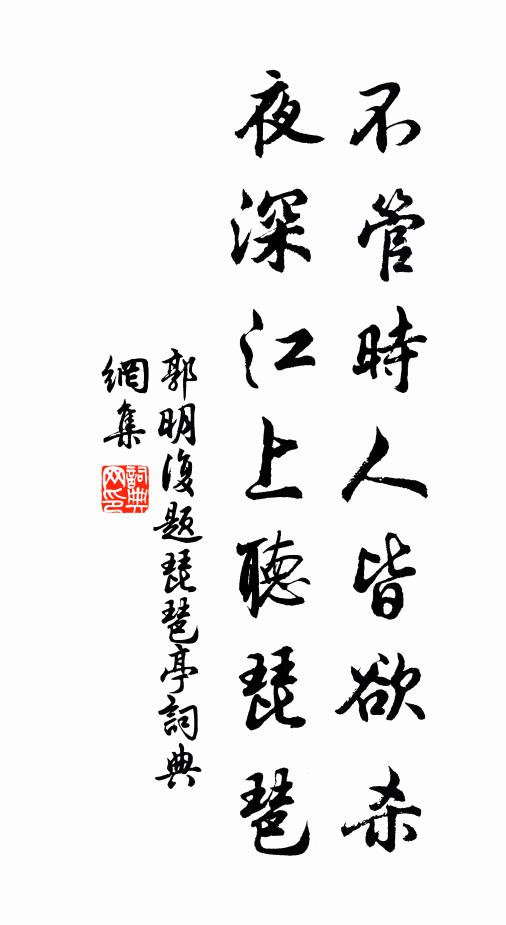 不管時人皆欲杀
夜深江上聽琵琶
郭明復題琵琶亭詞典
網集
詞典
网印